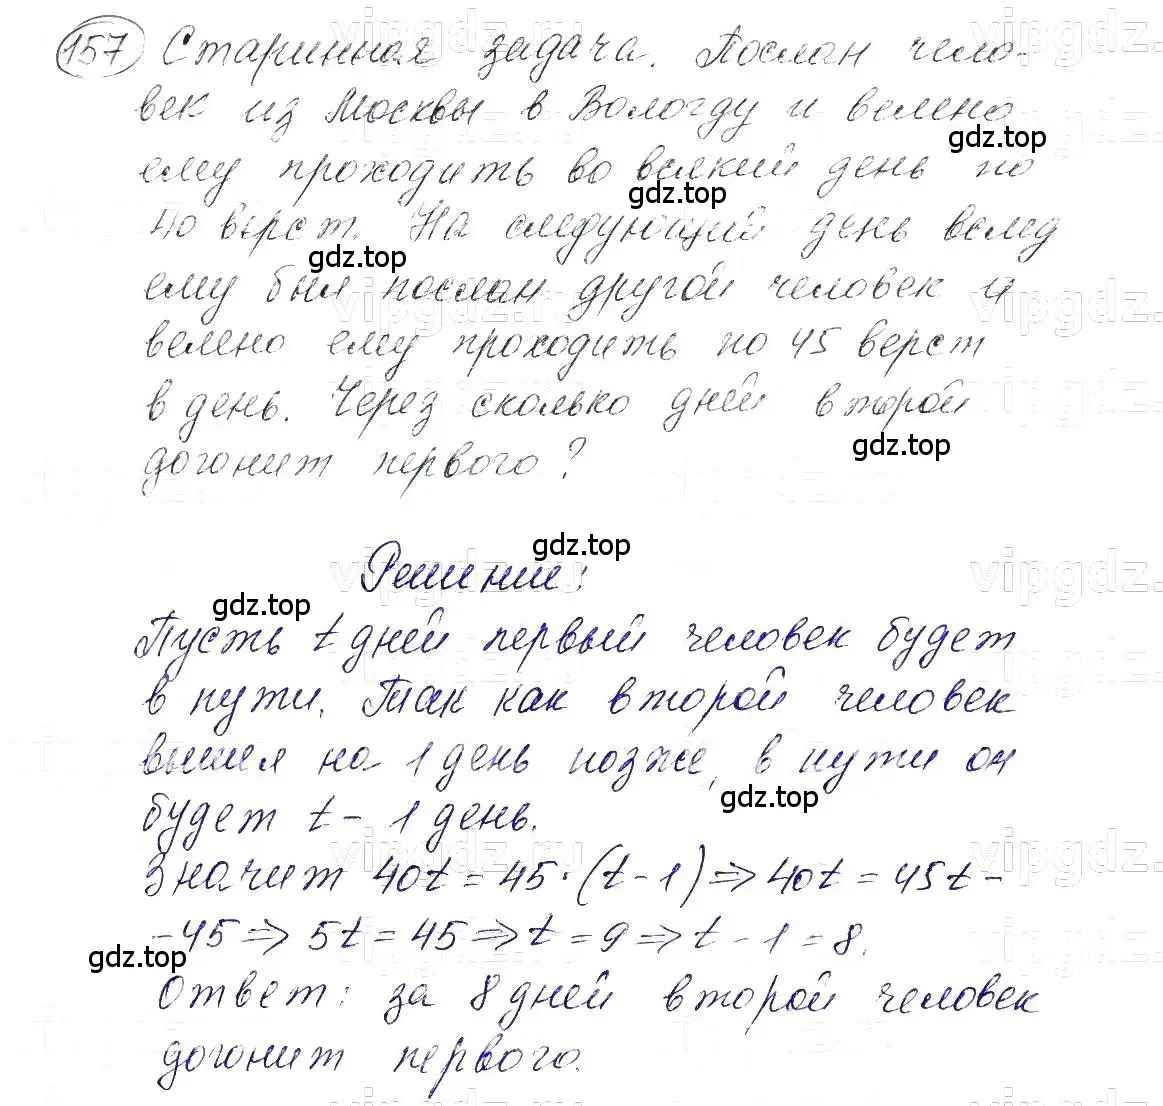 157 Старинная задача. Послан чело-
век из Москвы в Вологду и велено
gdz.top
ему проходить во всякий день по
gdz.top
40 верст. На следующий день вслед
gdz.top
ему был послан другой человек и
велено ему проходить по 45 верст
в день. Через сколько дней второй
gdz.top
догонит первого?
gdz.top
Решение:
gdz.top
Пусть t дней первый человек будет
в пути. Так как второй человек
вышел на 1 день позже, в пути он
gdz.top
будет t - 1 день.
Значит 40t = 45·(t-1) => 40t = 45t -
- 45 => 5t = 45 => t = 9 => t - 1 = 8.
gdz.top
Ответ: за 8 дней второй человек
догонит первого.